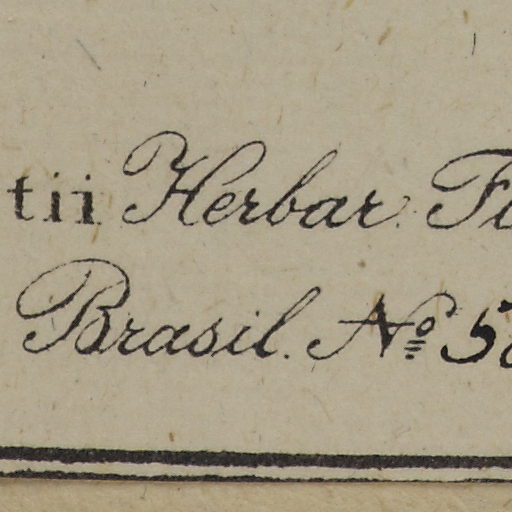 tii Herbar. Fl
Brasil. Nº 58